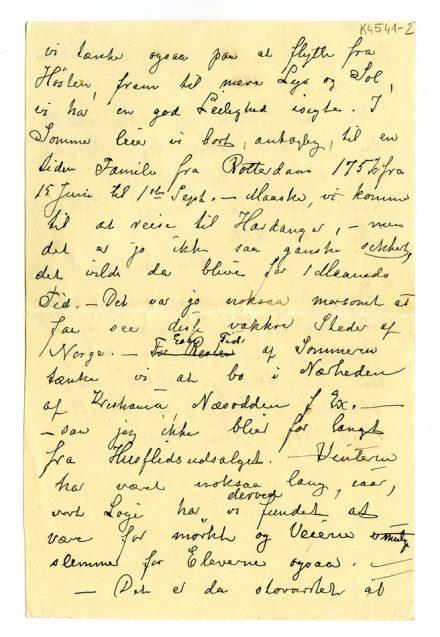 K4541-2
vi tænke ogsaa paa at flytte fra
Hösten, frem til mere Lys og Sol,
vi har en god Leilighed isigte. I
Sommer leier vi bort, antagelig, til en
liden Familie fra Rotterdam 175 Kr fra
15 Juni til 1ste Sept. – Maaske, vi komme
til at reise til Hardanger, – men
det er jo ikke saa ganske sikkert,
det vilde da blive for 1 Maaneds
Tid. – Det var jo noksaa morsomt at
faa see disse vakkre Steder af
Norge. – For Resten Tid af Sommeren
tænke vi at bo i Nærheden
af Kristiania, Næsodden f Ex. –
– saa jeg ikke blier for langt
fra Husflidsudsalget. – Vinteren
har været noksaa lang, iaar,
vort Logi har vi derved fundet at
være for mörkt og Veiene
slemme for Eleverne ogsaa. –
– Det er da storartet at